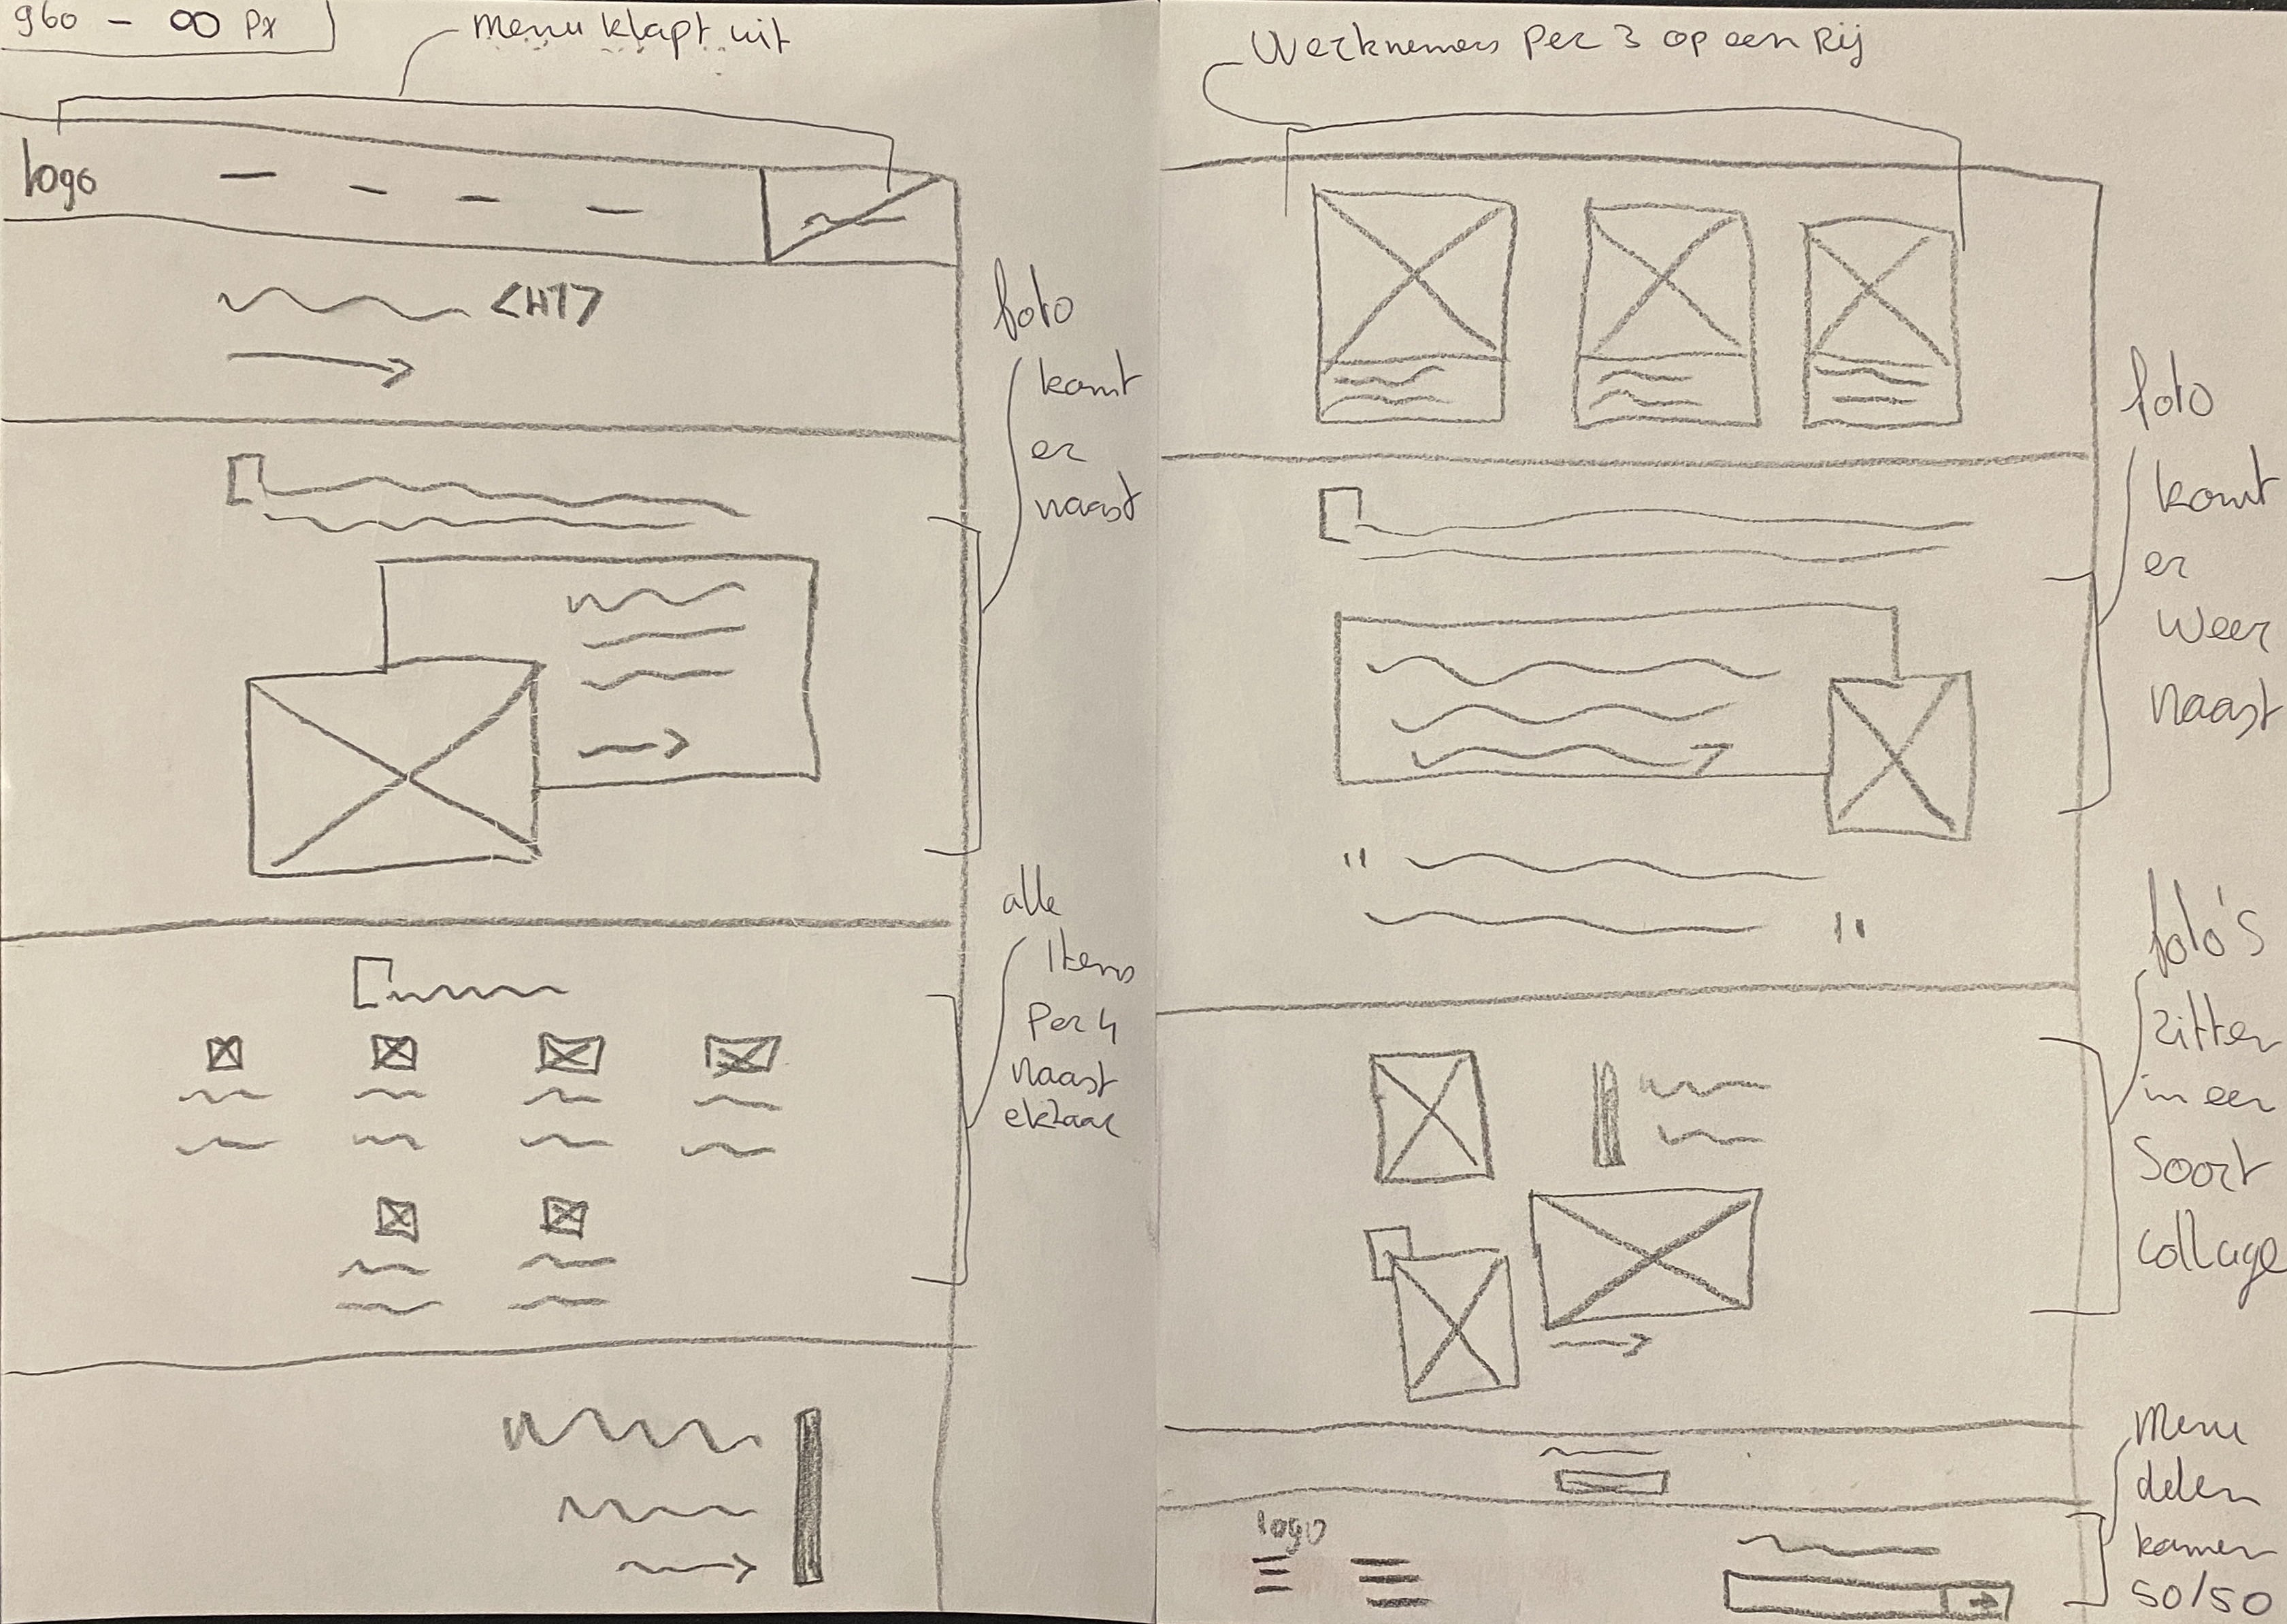 960 - ∞ px
Menu klapt uit
logo
<H1>
foto
komt
er
naast
alle
Items
Per 4
naast
elkaar
Werknemers Per 3 op een Rij
foto
komt
er
weer
naast
" "
foto's
zitten
in een
Soort
collage
logo
Menu
delen
komen
50/50